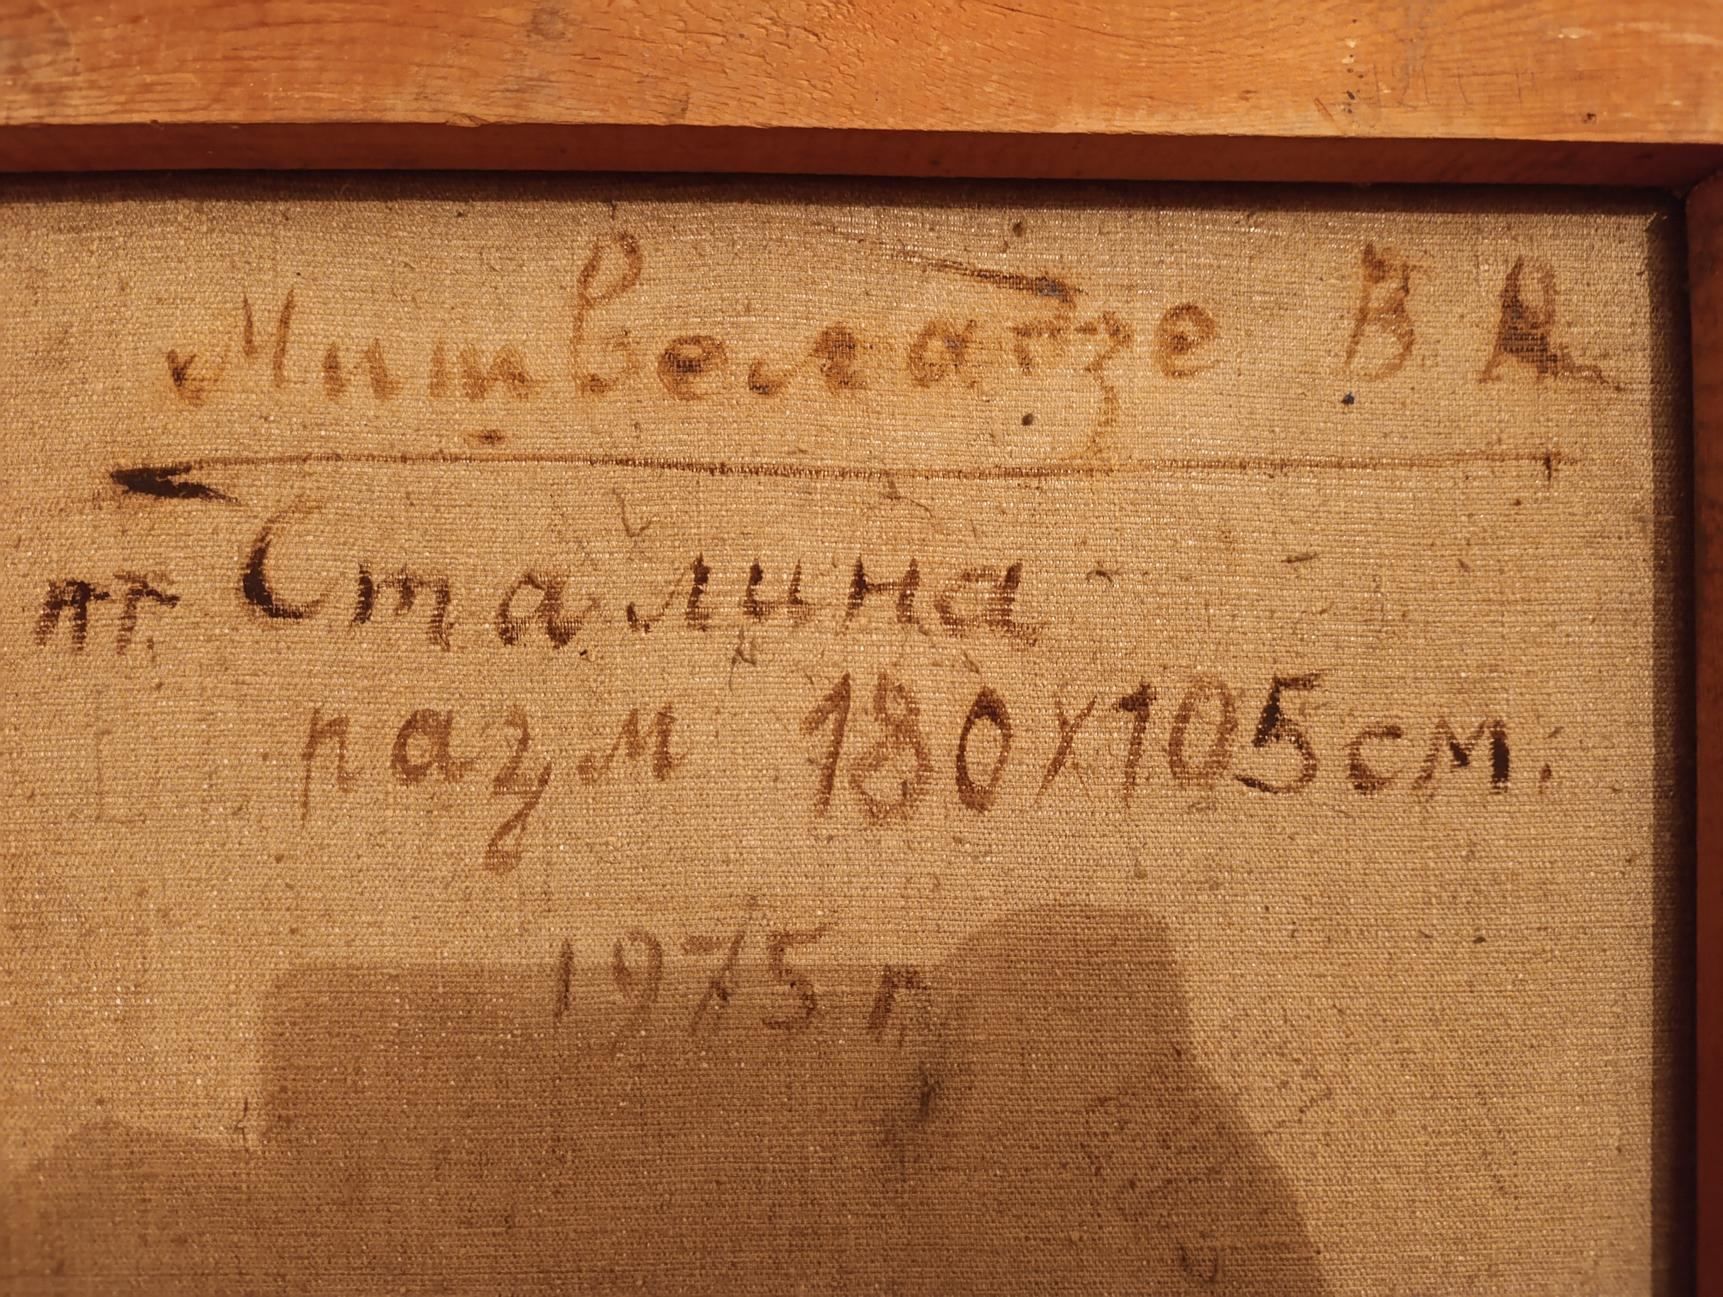 Митвеладзе В А
пт. Сталина
разм 180х105см.
1975 г